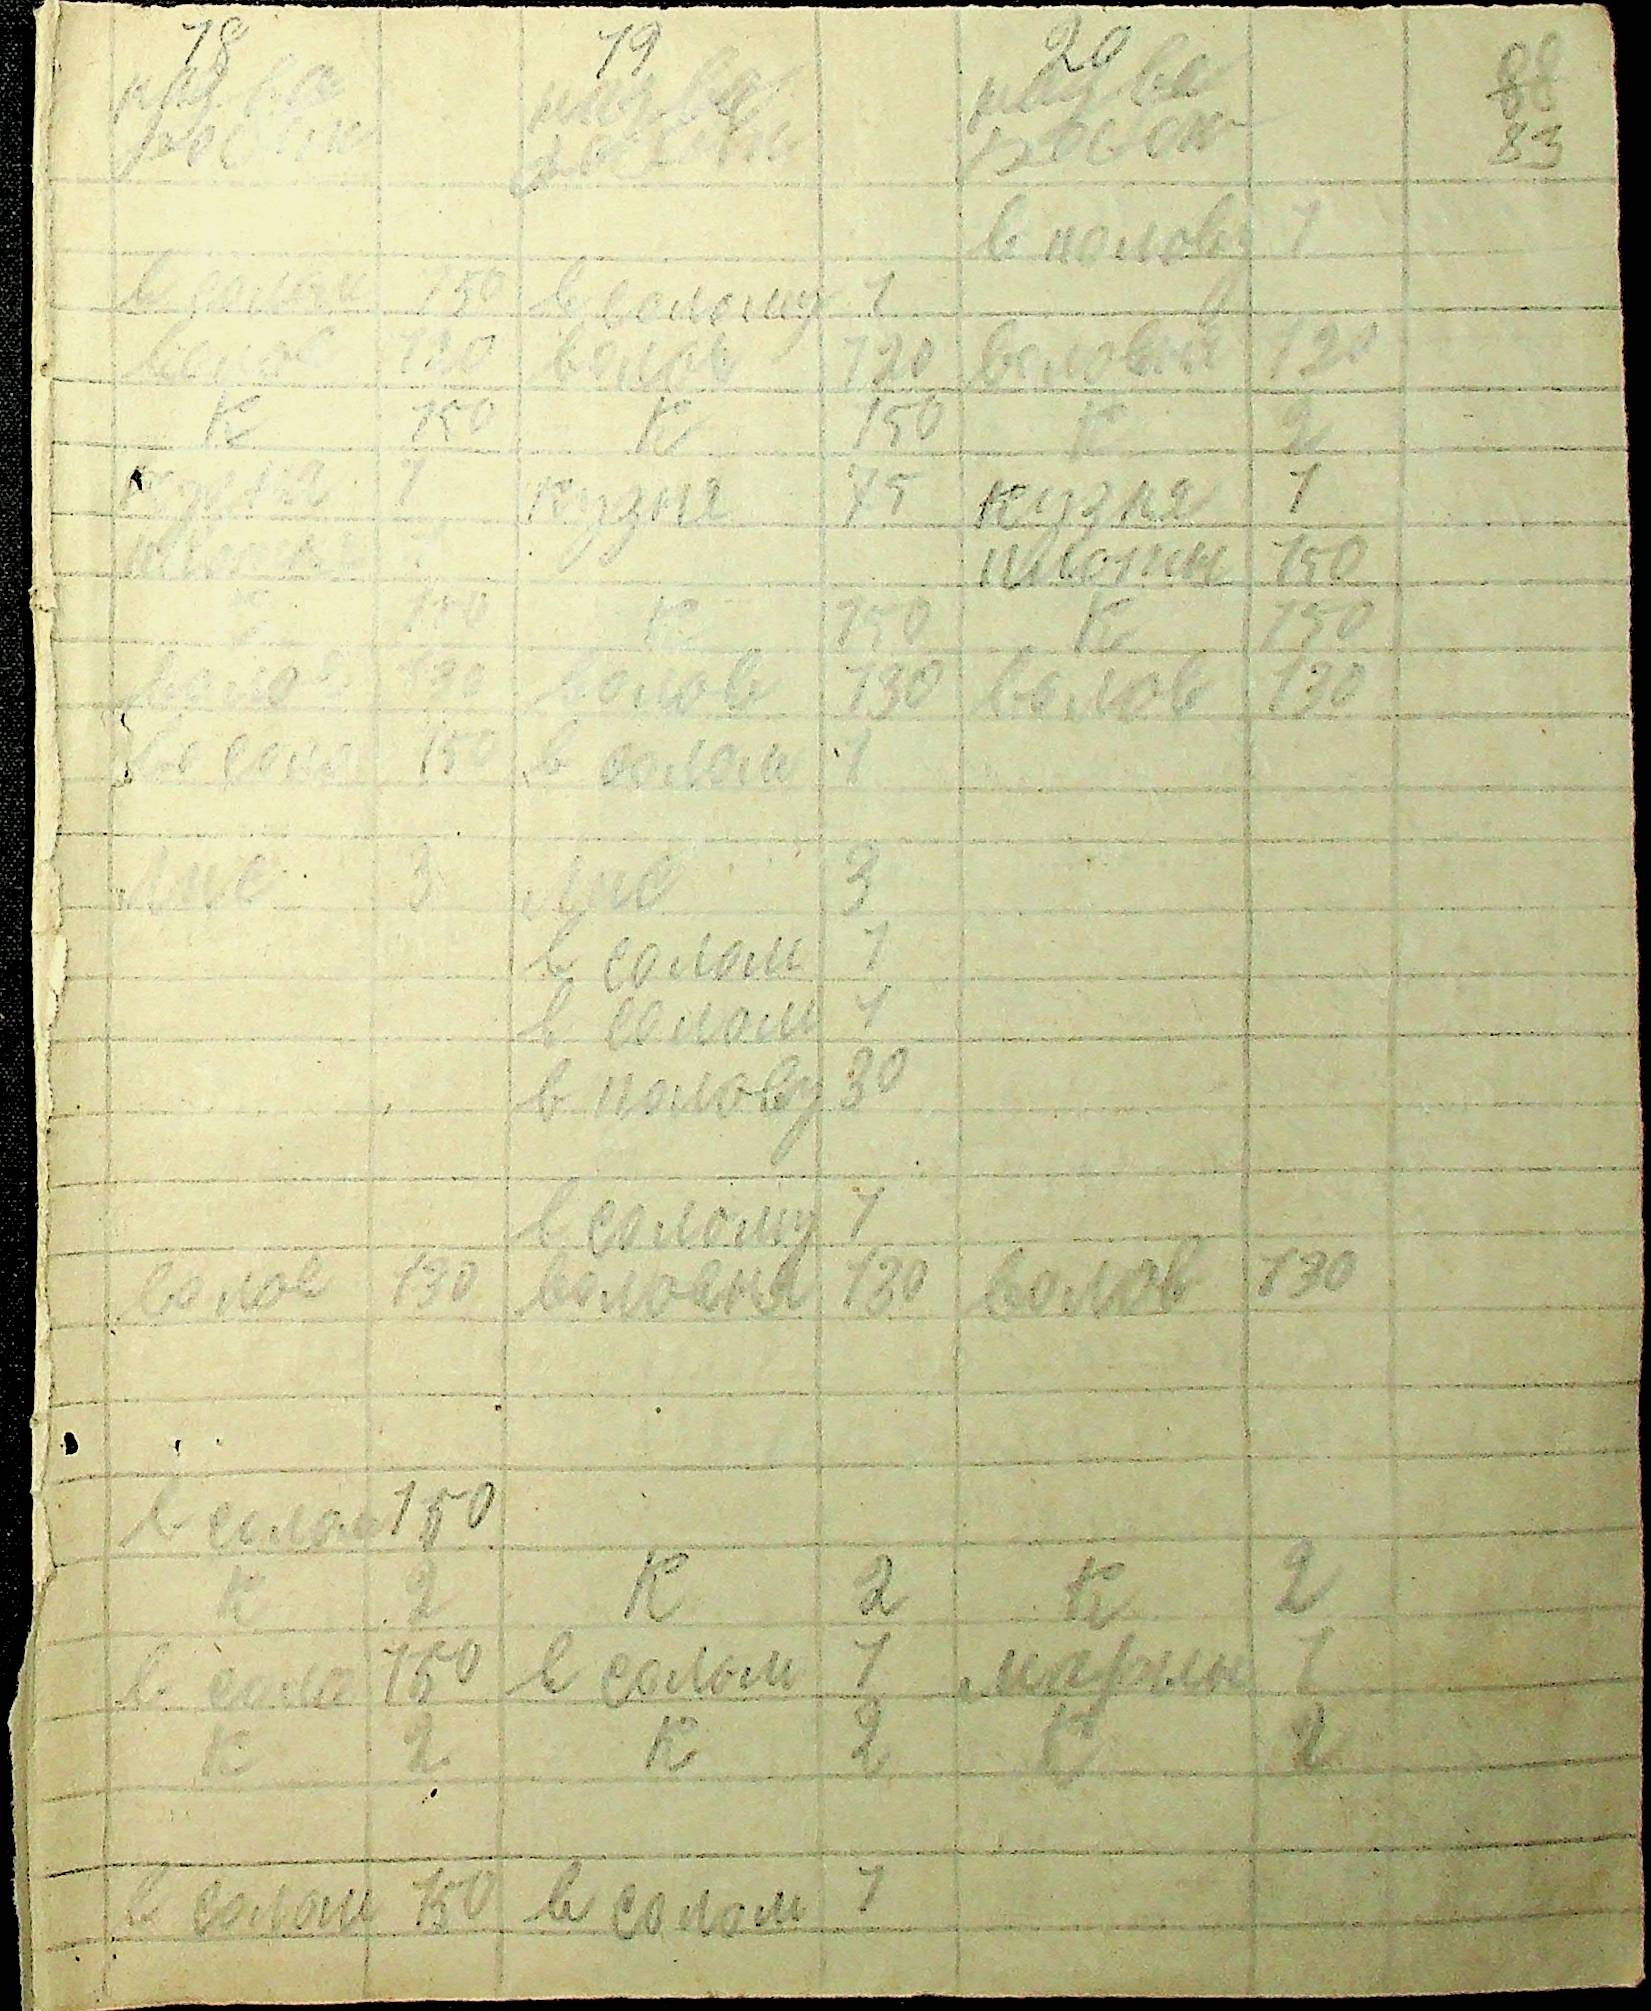 18 19 20 88
назва назва назва 83
робот робот робот
в полову 1
в солом 150 в солому 1
волов 120 волов 120 воловня 120
К 150 К 150 К 2
кузня 1 кузня 75 кузня 1
плотни 1 плотни 150
К 150 К 150 К 150
волов 130 волов 130 волов 130
в соло 150 в солом 1
3 3
в солом 1
в солом 1
в полову 30
в солому 1
волов 130 воловня 130 волов 130
в солом 150
К 2 К 2 К 2
в соло 150 в солом 1 1
К 2 К 2 К 2
в солом 150 в солом 1